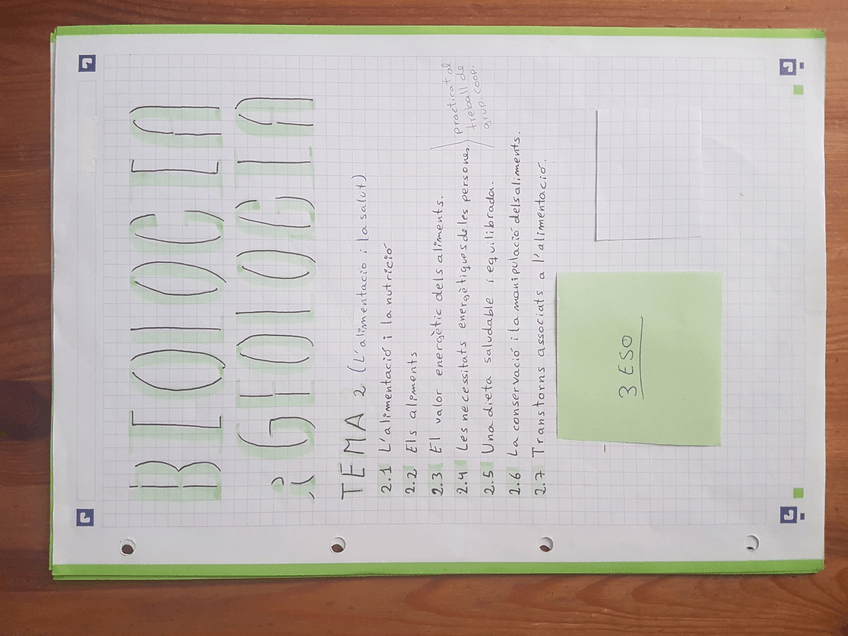 BIOLOGIA
i GEOLOGIA
TEMA 2 (L'alimentació i la salut)
2.1 L'alimentació i la nutrició
2.2 Els aliments
2.3 El valor energètic dels aliments.
2.4 Les necessitats energètiques de les persones
practicat al
treball de
grup coop.
2.5 Una dieta saludable i equilibrada.
2.6 La conservació i la manipulació dels aliments.
2.7 Transtorns associats a l'alimentació.
3 ESO